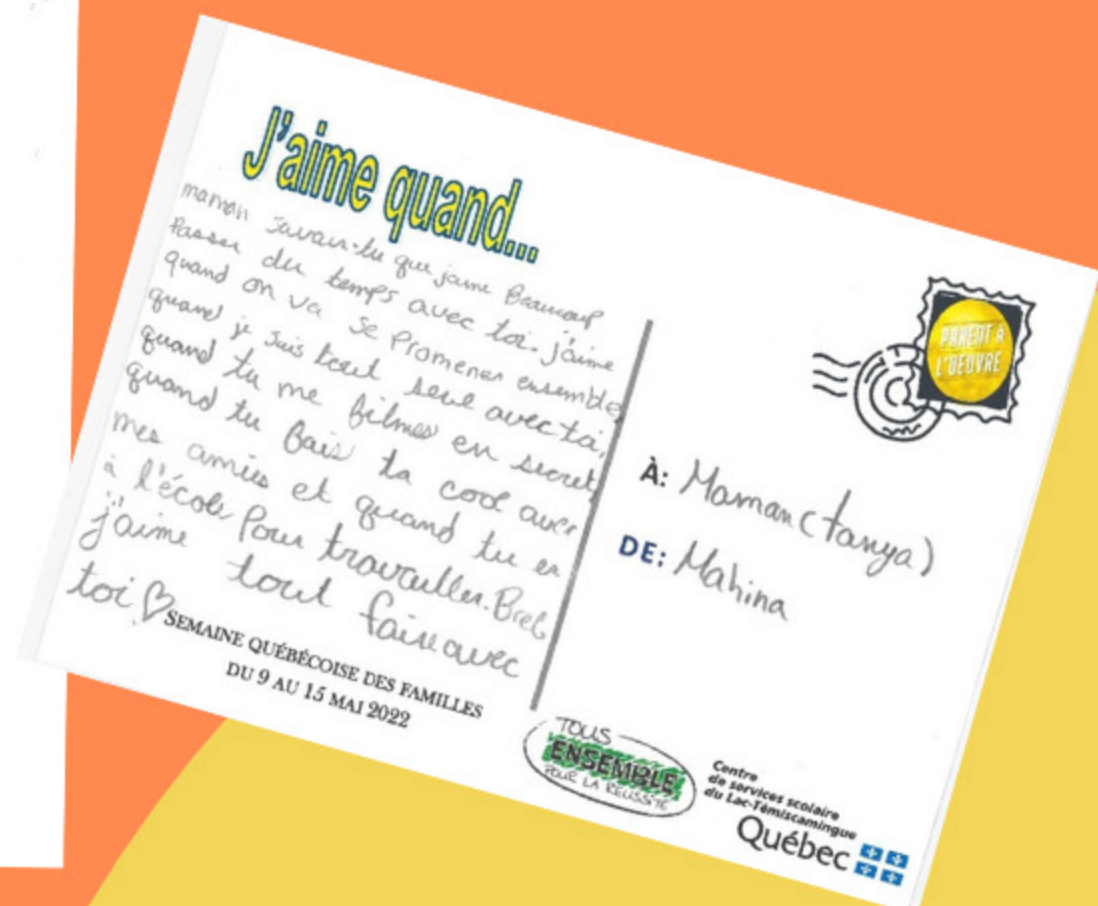 J'aime quand...
maman savais-tu que jaime Beaucoup
Passer du temps avec toi. j'aime
quand on va se Promener ensemble,
quand je suis tout seul avec toi,
quand tu me filmes en secret,
quand tu fais ta cool avec
mes amies et quand tu en
à l'école Pour travailler. Bref
j'aime tout faire avec
toi ♡
SEMAINE QUÉBÉCOISE DES FAMILLES
DU 9 AU 15 MAI 2022
PARENT À
L'OEUVRE
À: Maman (tanya)
DE: Mahina
TOUS
ENSEMBLE
POUR LA RÉUSSITE
Centre
de services scolaire
du Lac-Témiscamingue
Québec